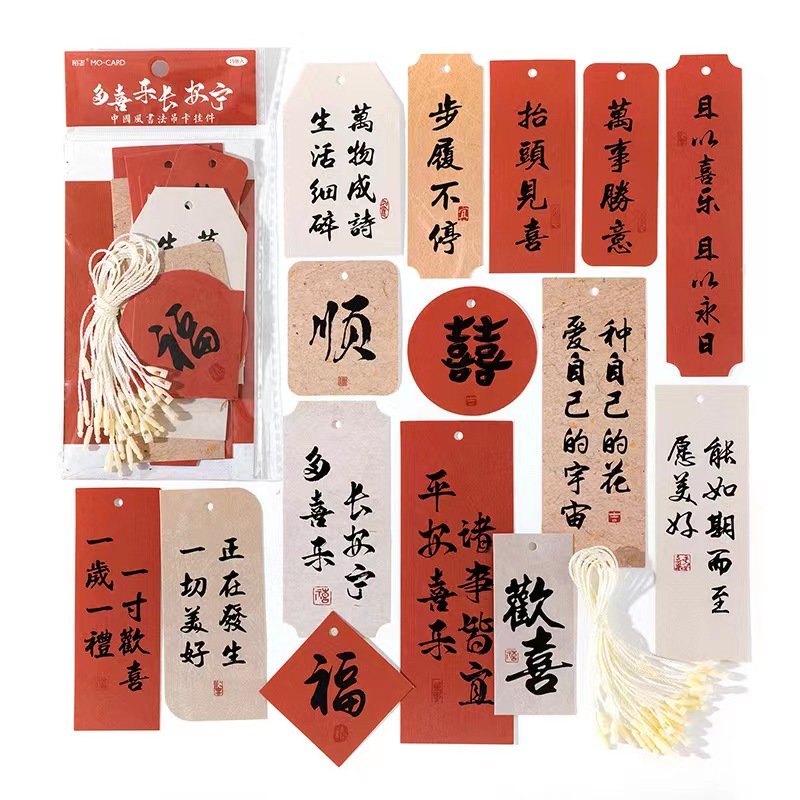 陌墨 MO-CARD
15张入
多喜乐长安宁
中國風書法吊卡挂件
福
生活细碎
萬物成詩
步履不停
抬頭見喜
萬事勝意
且以喜乐 且以永日
顺
囍
种自己的花
爱自己的宇宙
多喜乐
长安宁
平安喜乐
诸事皆宜
愿美好
能如期而至
一歲一禮
一寸歡喜
一切美好
正在發生
歡喜
福